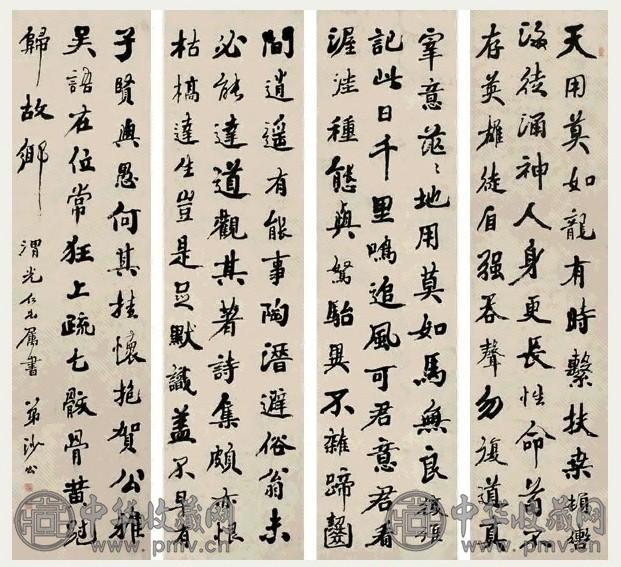 天用莫如龍有時繫扶桑頓轡
海徒涌神人身更長性命苟不
存英雄徒自强吞聲勿復道真
宰意茫〻地用莫如馬無良誰復
記此日千里鳴追風可君意君看
渥洼種態與駑駘異不雜蹄齧
間逍遥有能事陶潛避俗翁未
必能達道觀其著詩集頗亦恨
枯槁達生豈是足默識蓋不早有
子賢與愚何其挂懷抱賀公雅
吳語在位常狂上疏乞骸骨黃冠
歸故鄉
渭光仁兄屬書 沙公
中华收藏网
www.pmv.cn
中华收藏网
www.pmv.cn